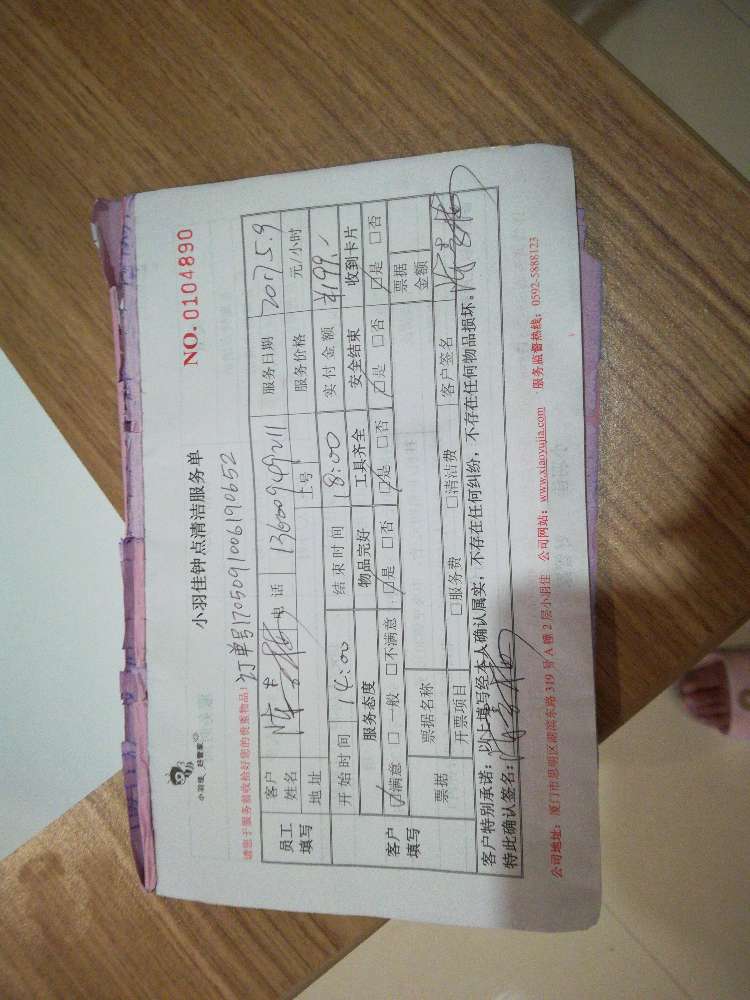 小羽佳 好管家
小羽佳钟点清洁服务单
NO. 0104890
请您于服务前收拾好您的贵重物品! 订单号1705091006190652
员工填写 客户姓名 电话 13600949211 服务日期 2017.5.9
地址 工号 服务价格 元/小时
开始时间 14:00 结束时间 18:00 实付金额 ¥199.-
客户填写 服务态度 物品完好 工具齐全 安全结束 收到卡片
☑满意 □一般 □不满意 ☑是 □否 ☑是 □否 ☑是 □否 ☑是 □否
票据 票据名称 票据金额
开票项目 □服务费 □清洁费 客户签名
客户特别承诺:以上填写经本人确认属实,不存在任何纠纷,不存在任何物品损坏。
特此确认签名:
公司地址:厦门市思明区湖滨东路319号A幢2层小羽佳 公司网站:www.xiaoyujia.com 服务监督热线:0592-5888123